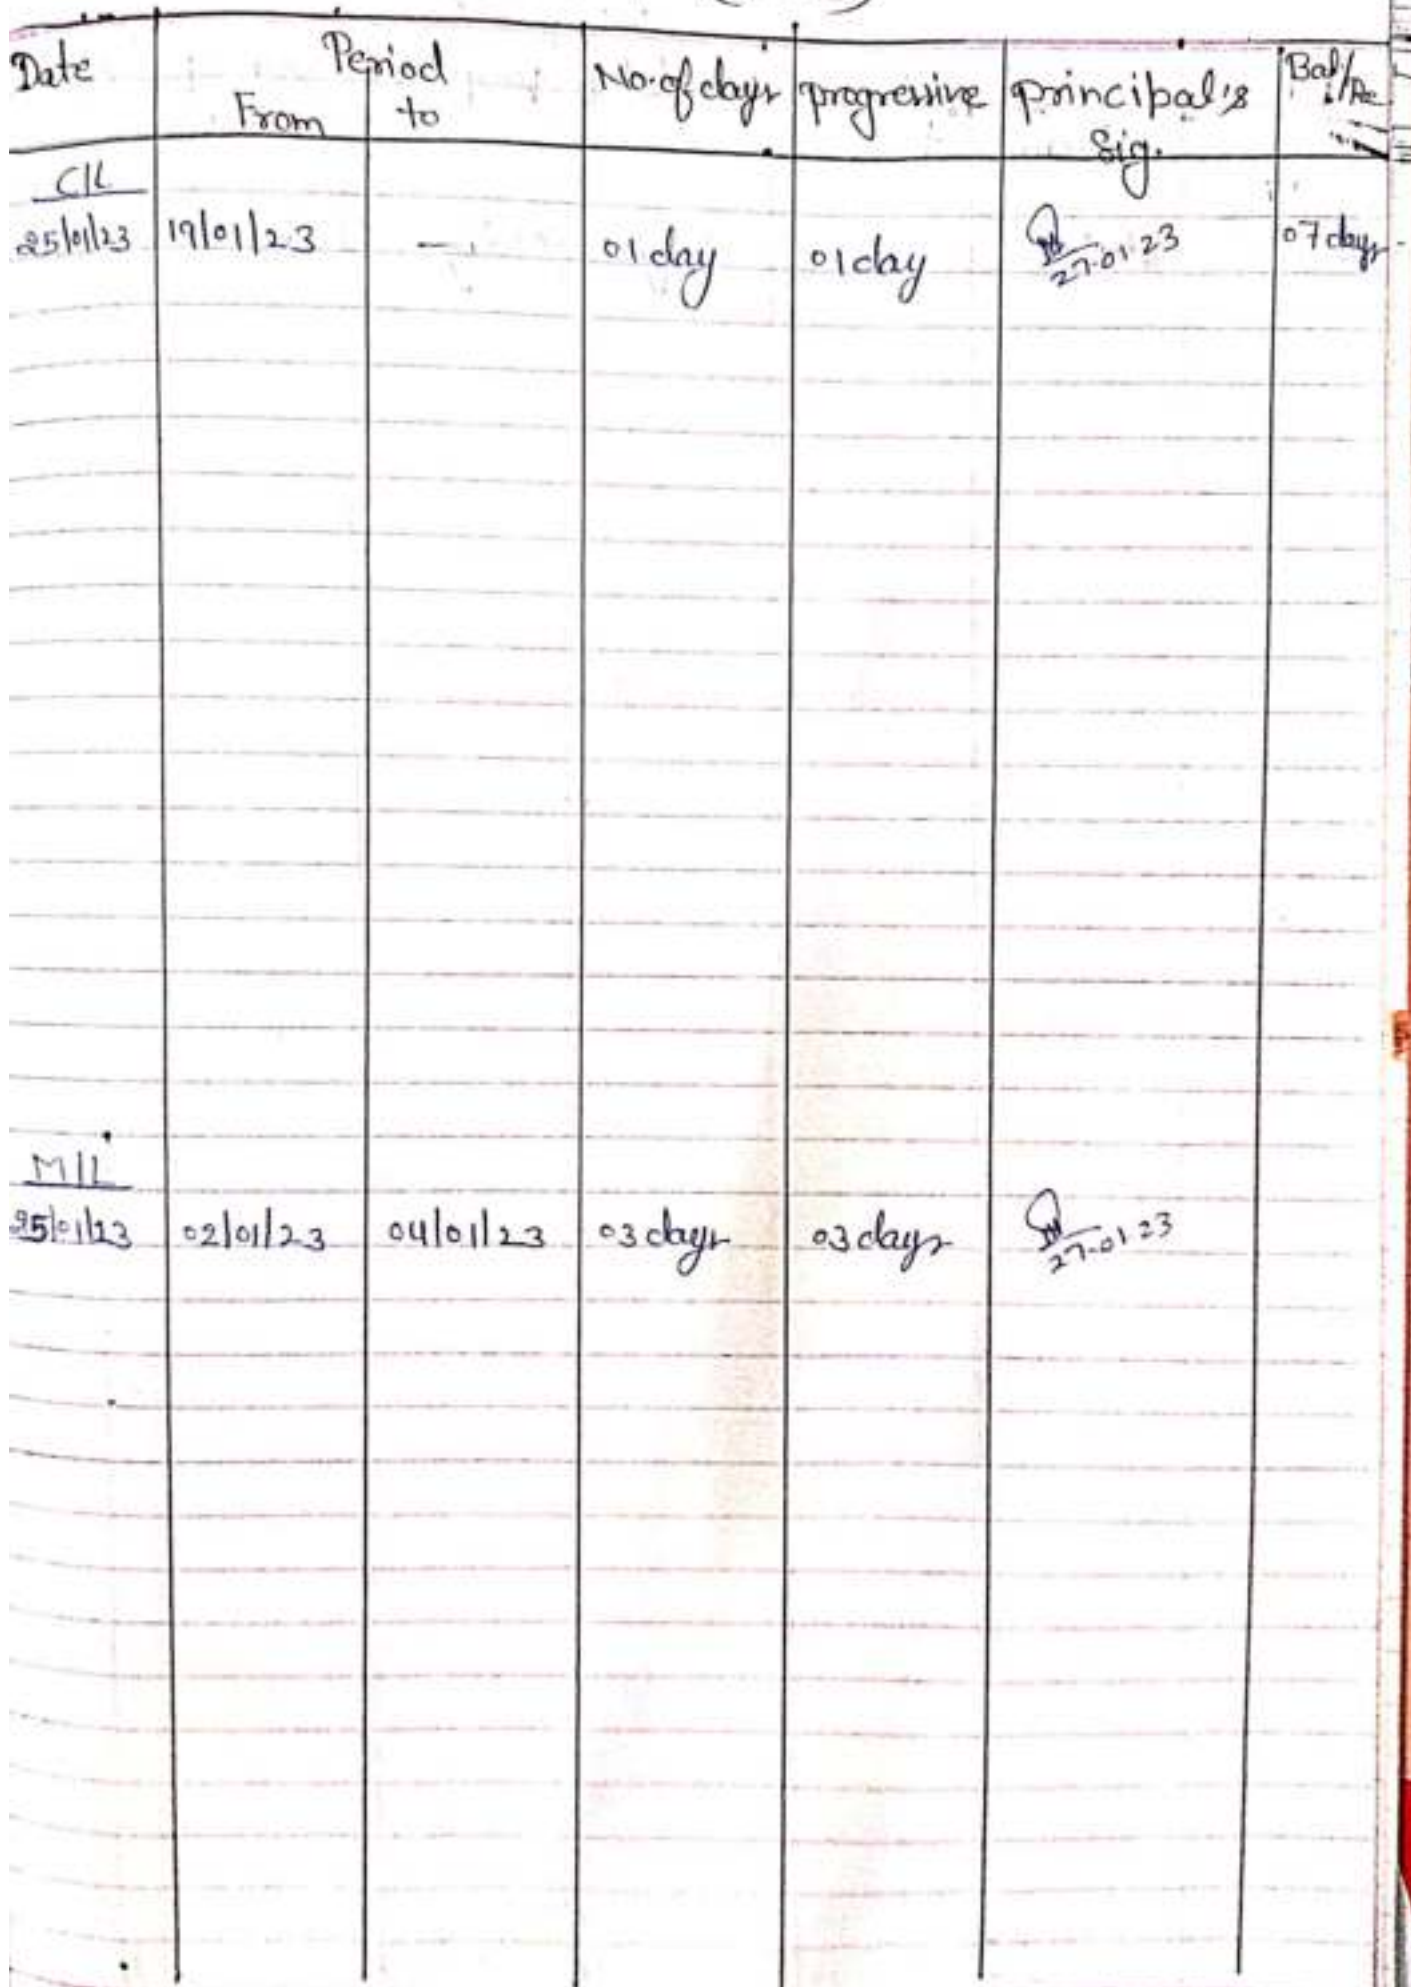 Date Period No.of days progressive principal's Bal/Re
From to Sig.
C/L
25/01/23 19/01/23 — 01 day 01 day 27.01.23 07 days
M/L
25/01/23 02/01/23 04/01/23 03 days 03 days 27.01.23